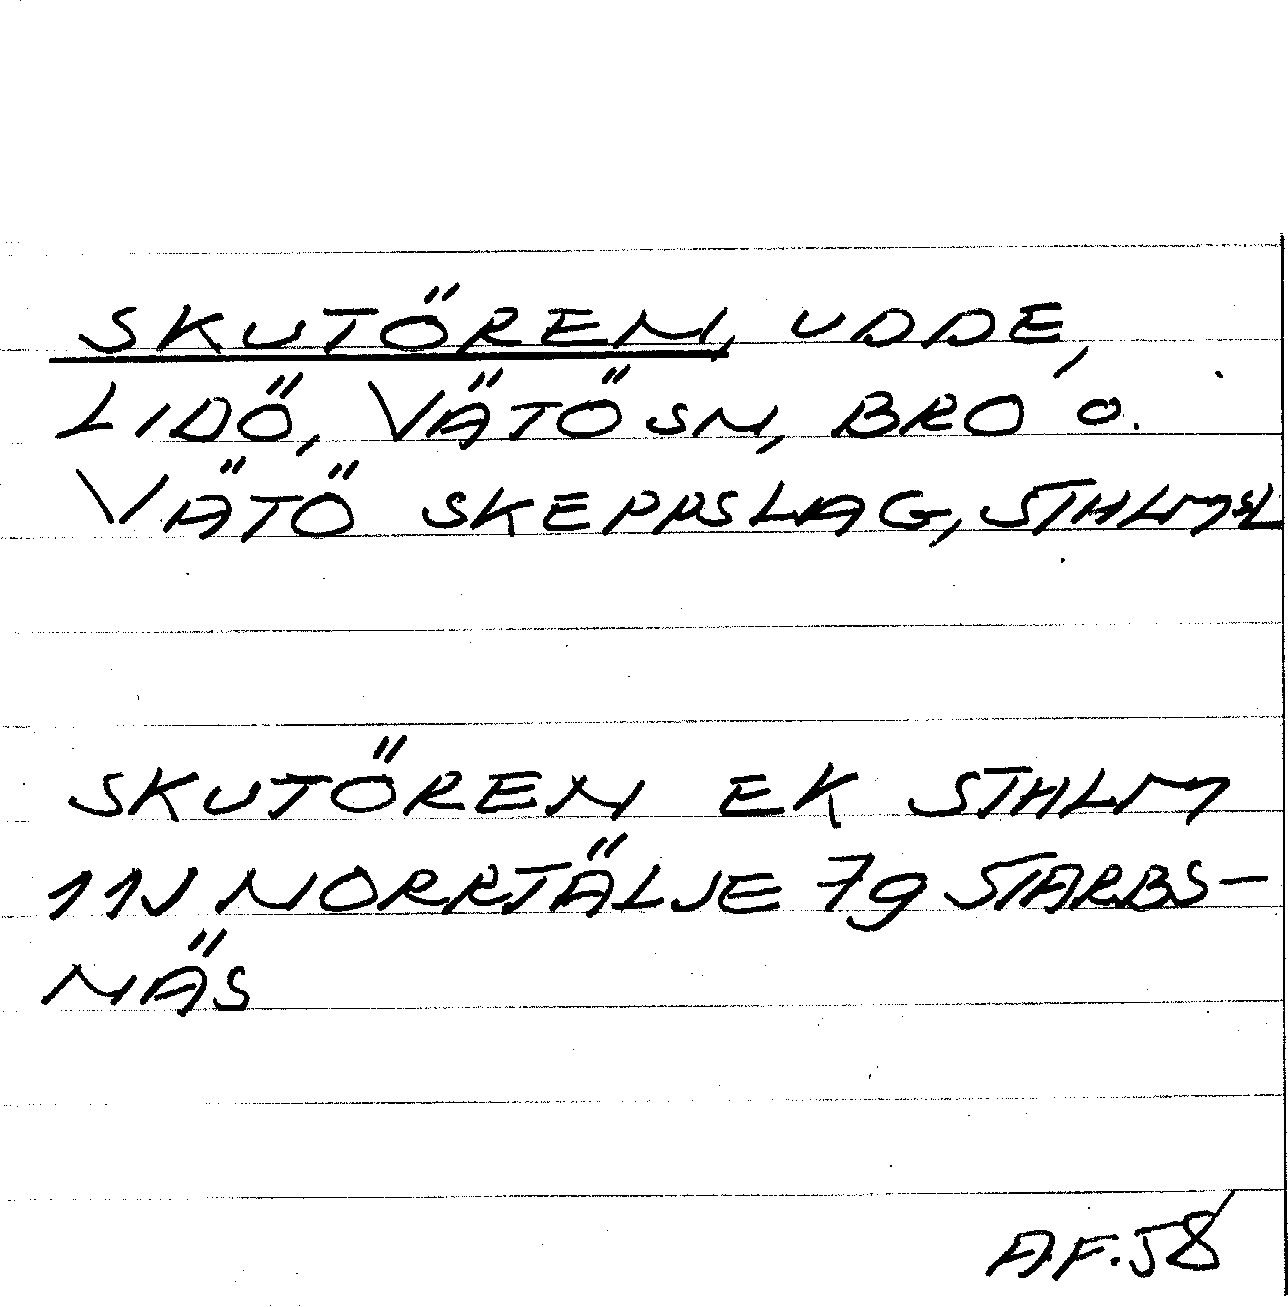 SKUTÖREN, UDDE,
LIDÖ, VÄTÖ SN, BRO O.
VÄTÖ SKEPPSLAG, STHLMSL
SKUTÖREN EK STHLM
11J NORRTÄLJE 79 STARBS-
NÄS
A.F.58